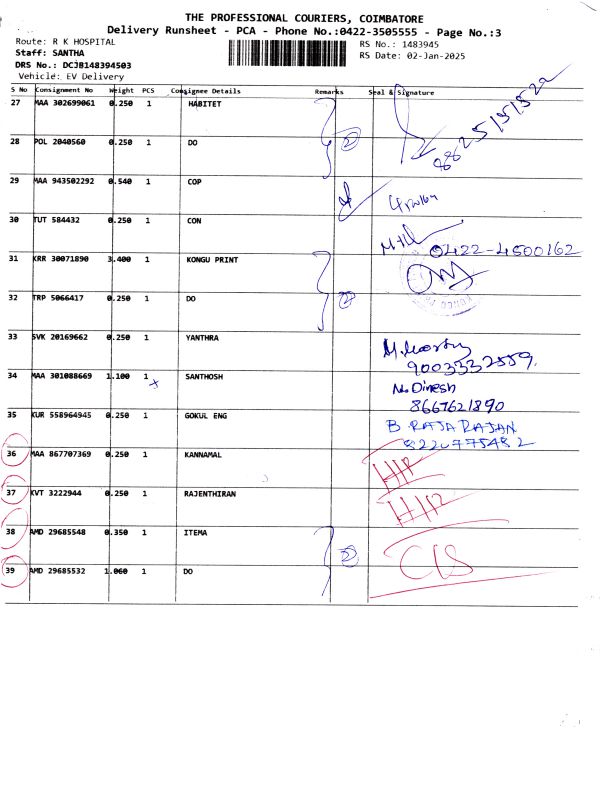 THE PROFESSIONAL COURIERS, COIMBATORE
Delivery Runsheet - PCA - Phone No.:0422-3505555 - Page No.:3
Route: R K HOSPITAL
RS No.: 1483945
Staff: SANTHA
RS Date: 02-Jan-2025
DRS No.: DCJB148394503
Vehicle: EV Delivery
S No Consignment No Weight PCS Consignee Details Remarks Seal & Signature
27 MAA 302699061 0.250 1 HABITET
28 POL 2040560 0.250 1 DO 2
29 MAA 943502292 0.540 1 COP
30 TUT 584432 0.250 1 CON
0422-4500162
31 KRR 30071890 3.400 1 KONGU PRINT
32 TRP 5066417 0.250 1 DO 2
33 SVK 20169662 0.250 1 YANTHRA
M. Moorthy
9003332559.
34 MAA 301088669 1.100 1 SANTHOSH
N. Dinesh
8667621890
35 KUR 558964945 0.250 1 GOKUL ENG
B RAJA RAJAN
8220775482
36 MAA 867707369 0.250 1 KANNAMAL
37 KVT 3222944 0.250 1 RAJENTHIRAN
38 AMD 29685548 0.350 1 ITEMA
39 AMD 29685532 1.060 1 DO 2